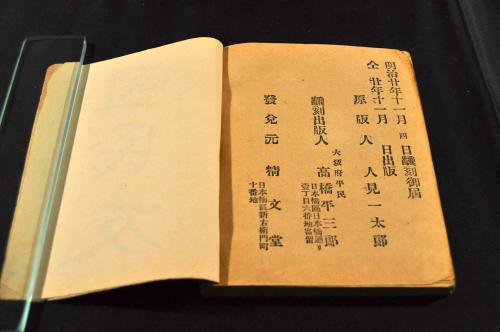 明治廿年十一月四日飜刻御届
仝廿年十一月 日出版
原版人 人見一太郎
大阪府平民
飜刻出版人 高橋平三郎
日本橋區日本橋通り
壹丁目六番地寄留
發兌元 精文堂
日本橋區新右衛門町
十番地